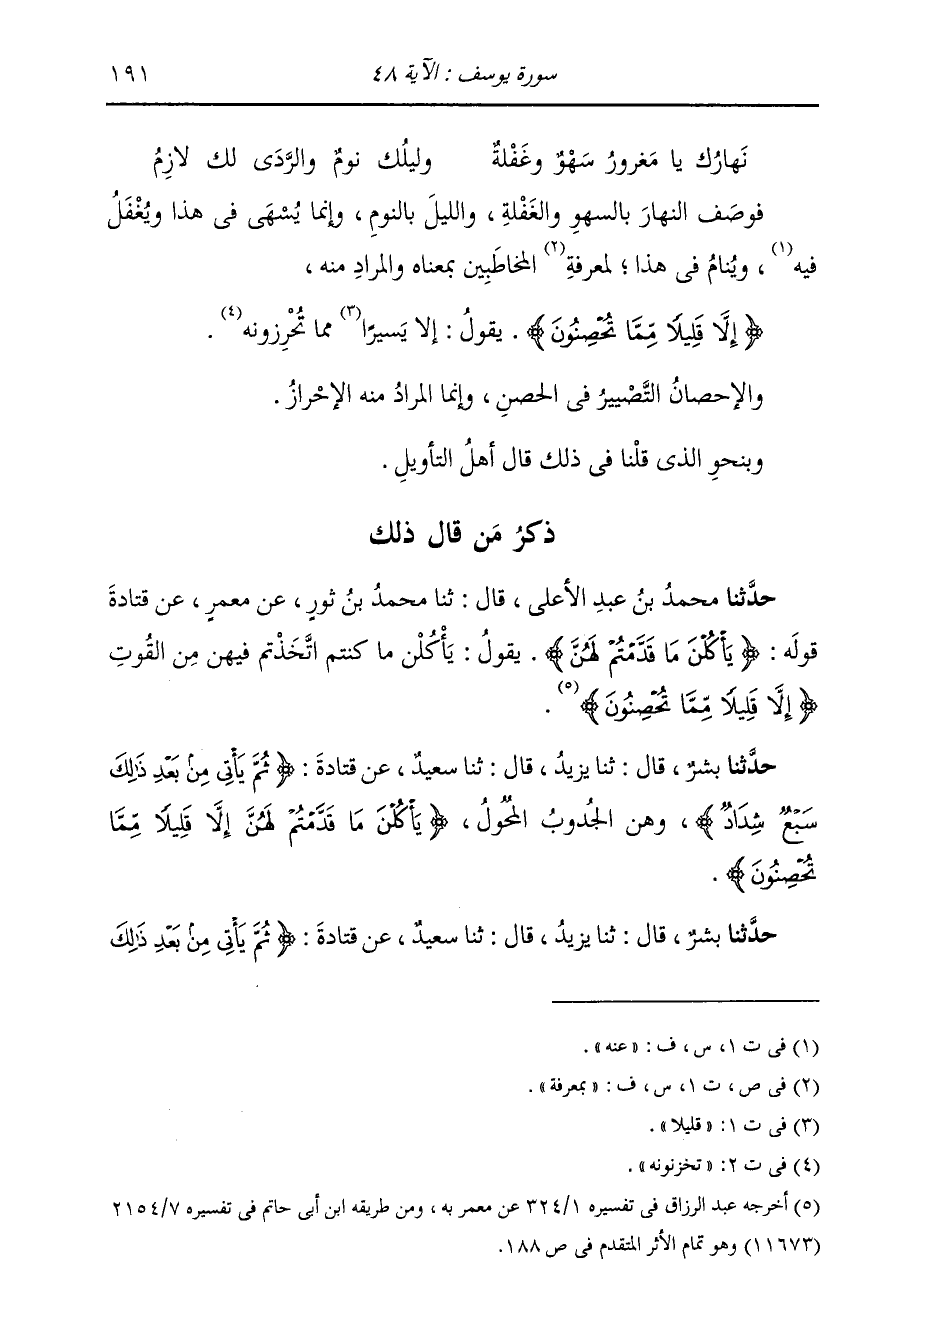 سورة يوسف : الآية ٤٨ ١٩١
نَهارُك يا مَغرورُ سَهْوٌ وغَفْلةٌ وليلُك نومٌ والرَّدَى لك لازِمُ
فوصَف النهارَ بالسهوِ والغَفْلةِ ، والليلَ بالنومِ ، وإنما يُسْهَى فى هذا ويُغْفَلُ
فيه(١) ، ويُنامُ فى هذا ؛ لمعرفةِ(٢) المخاطَبِين بمعناه والمرادِ منه ،
﴿ إِلَّا قَلِيلًا مِّمَّا تُحْصِنُونَ ﴾ . يقولُ : إلا يَسيرًا(٣) مما تُحْرِزونه(٤) .
والإحصانُ التَّصْييرُ فى الحصنِ ، وإنما المرادُ منه الإحْرازُ .
وبنحوِ الذى قلْنا فى ذلك قال أهلُ التأويلِ .
ذكرُ مَن قال ذلك
حدَّثنا محمدُ بنُ عبدِ الأعلى ، قال : ثنا محمدُ بنُ ثورٍ ، عن معمرٍ ، عن قتادةَ
قولَه : ﴿ يَأْكُلْنَ مَا قَدَّمْتُمْ لَهُنَّ ﴾ . يقولُ : يَأْكُلْن ما كنتم اتَّخَذْتم فيهن مِن القُوتِ
﴿ إِلَّا قَلِيلًا مِّمَّا تُحْصِنُونَ ﴾(٥) .
حدَّثنا بشرٌ ، قال : ثنا يزيدُ ، قال : ثنا سعيدٌ ، عن قتادةَ : ﴿ ثُمَّ يَأْتِى مِنۢ بَعْدِ ذَٰلِكَ
سَبْعٌ شِدَادٌ ﴾ ، وهن الجُدوبُ المُحُولُ ، ﴿ يَأْكُلْنَ مَا قَدَّمْتُمْ لَهُنَّ إِلَّا قَلِيلًا مِّمَّا
تُحْصِنُونَ ﴾ .
حدَّثنا بشرٌ ، قال : ثنا يزيدُ ، قال : ثنا سعيدٌ ، عن قتادةَ : ﴿ ثُمَّ يَأْتِى مِنۢ بَعْدِ ذَٰلِكَ
(١) فى ت ١، س ، ف : « عنه » .
(٢) فى ص ، ت ١، س ، ف : « بمعرفة » .
(٣) فى ت ١: « قليلا » .
(٤) فى ت ٢: « تخزنونه » .
(٥) أخرجه عبد الرزاق فى تفسيره ٣٢٤/١ عن معمر به ، ومن طريقه ابن أبى حاتم فى تفسيره ٢١٥٤/٧
(١١٦٧٣) وهو تمام الأثر المتقدم فى ص ١٨٨.